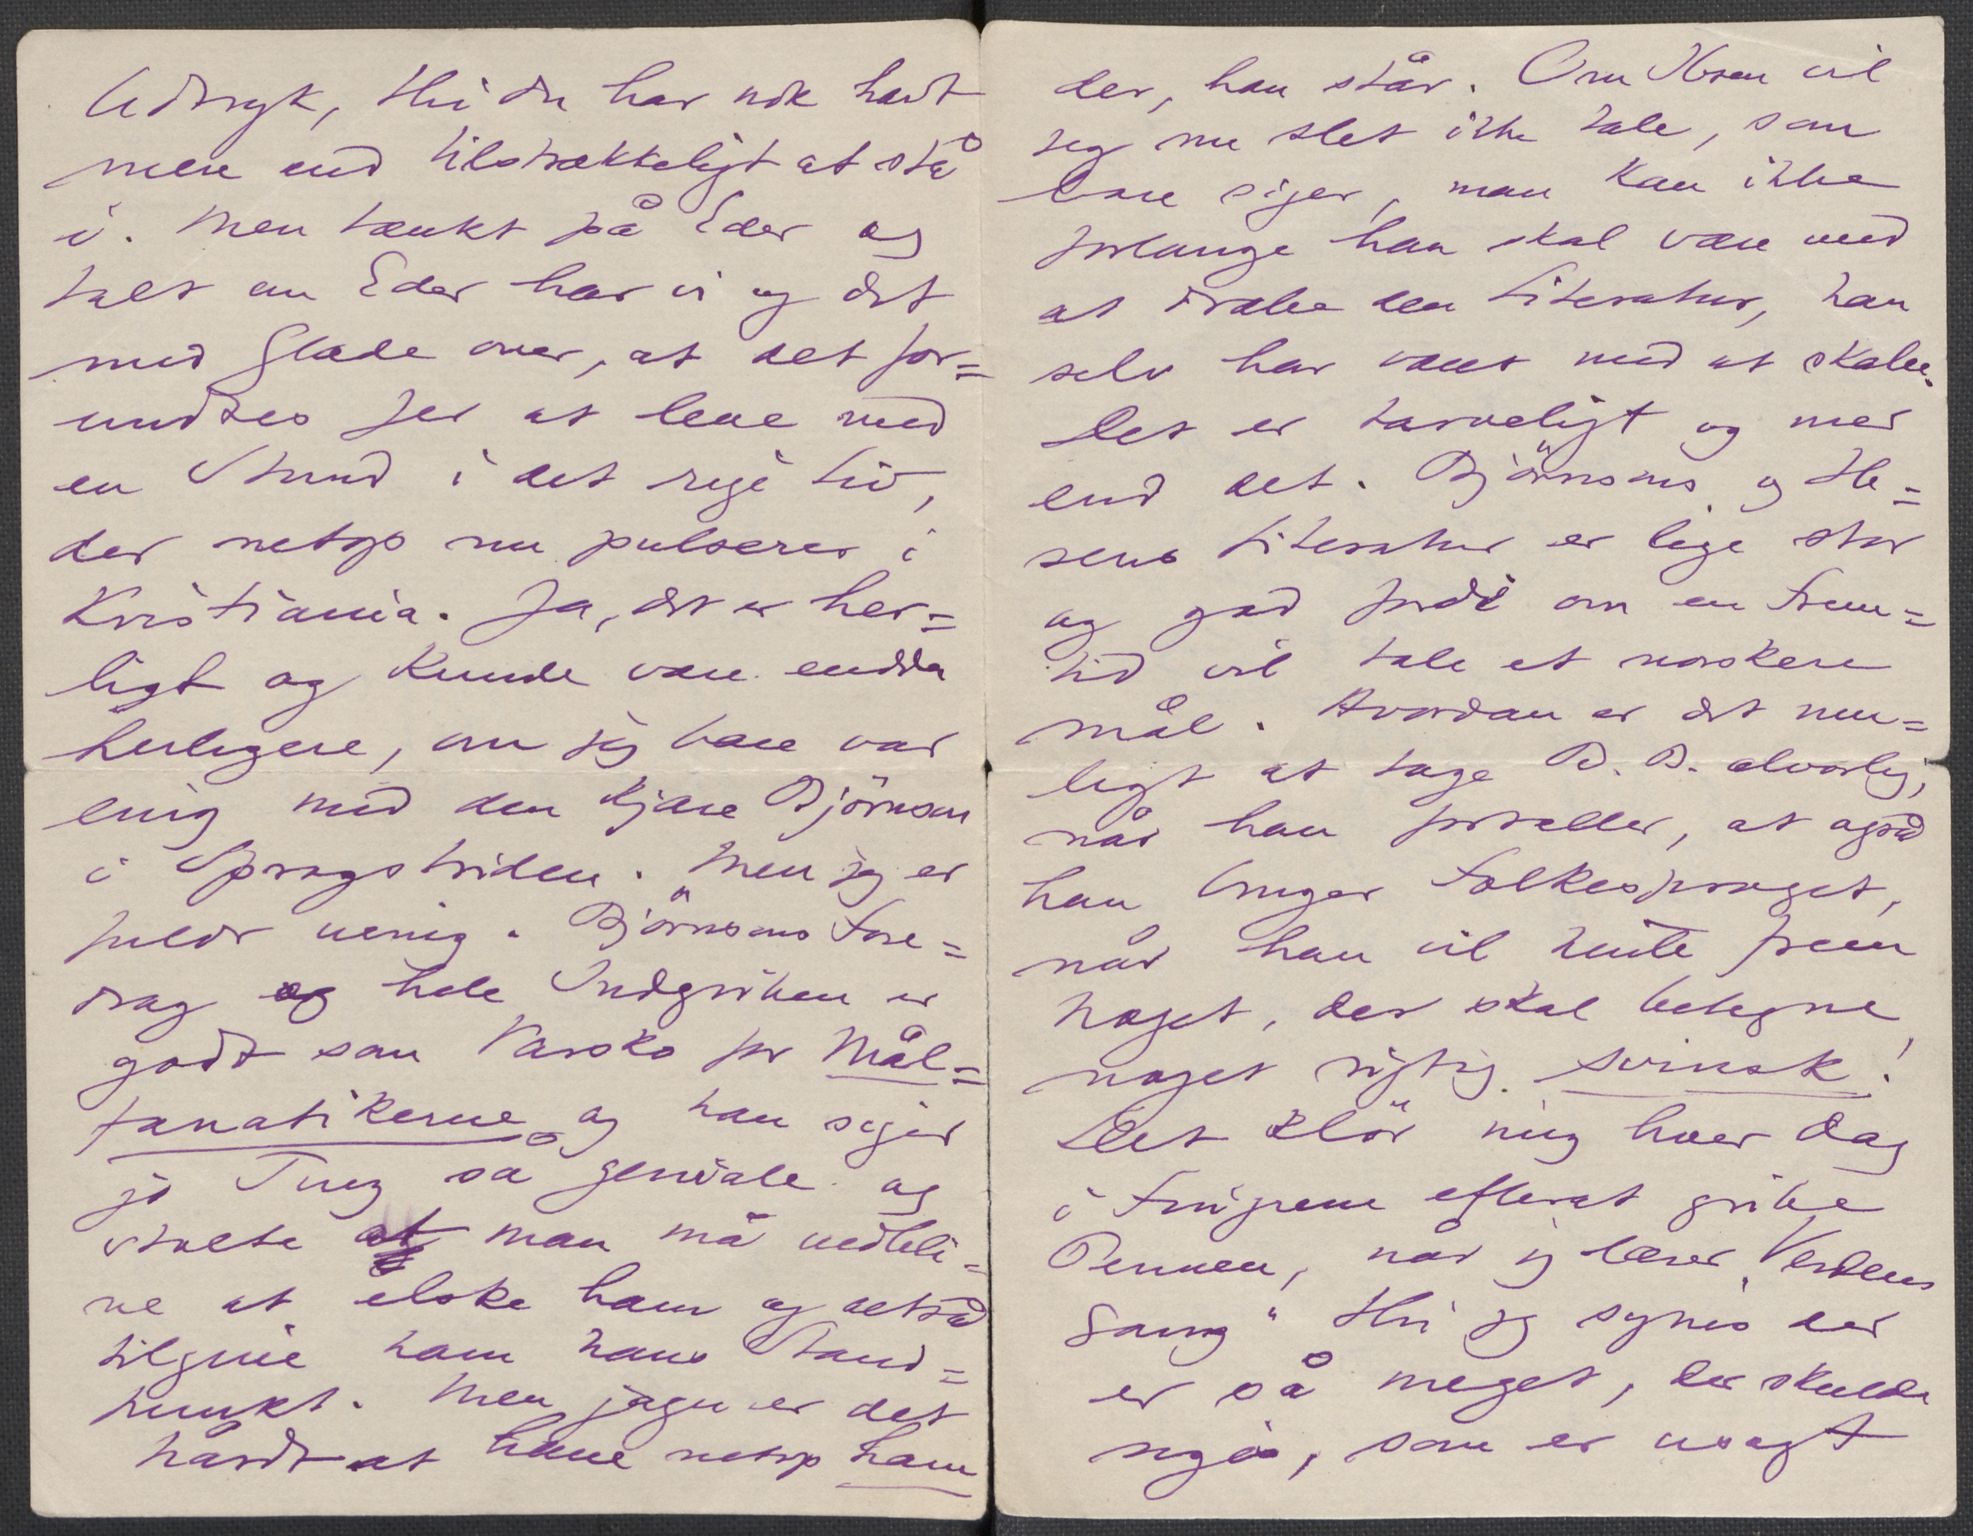 Udtryk, thi du har nok havt
mere end tilstrækkeligt at stå
i. Men tænkt på Eder og
talt om Eder har vi og det
med Glæde over, at det for=
undtes Jer at leve med
en Stund i det rige Liv,
der netop nu pulserer i
Kristiania. Ja, det er her=
ligt og kunde være endda
herligere, om jeg bare var
enig med den kjære Björnson
i Sprogstriden. Men jeg er
fuldt uenig. Björnsons Fore=
drag og hele Indgriben er
godt som Varsko for Mål=
fanatikerne og han siger
jo Ting så geniale og
stolte at man må vedbli=
ve at elske ham og også
tilgive ham hans Stand=
punkt. Men jagu er det
hårdt at have netop ham
der, han står. Om Ibsen vil
jeg nu slet ikke tale, som
bare siger, man kan ikke
forlange han skal være med
at dræbe den Literatur, han
selv har været med at skabe.
Det er tarveligt og mer
end det. Björnsons og Ib=
sens Literatur er lige stor
og god fordi om en Frem=
tid vil tale et norskere
mål. Hvordan er det mu=
ligt at tage B. B. alvorlig,
når han fortæller, at også
han bruger Folkesproget,
når han vil hente frem
noget, der skal betegne
noget rigtig svinsk!
Det klör mig hver Dag
i Fingrene efterat gribe
Pennen, når jeg læser „Verdens
Gang" thi jeg synes der
er så meget, der skulde
siges, som er usagt